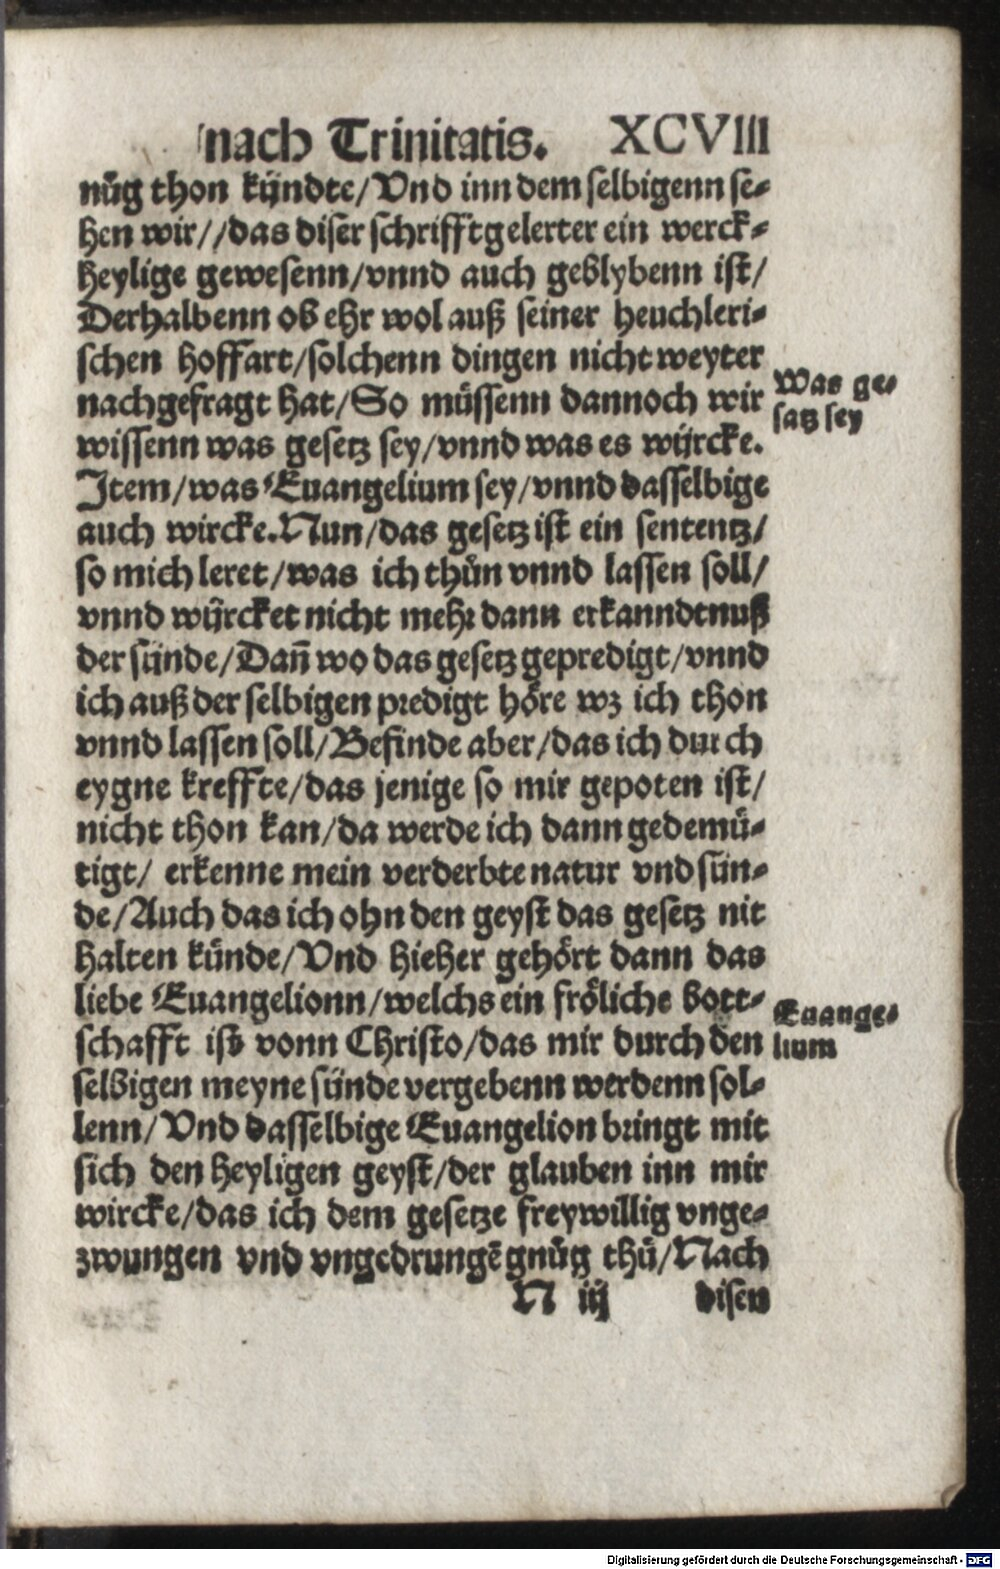 nach Trinitatis. XCVIII
nůg thon kündte/Vnd inn dem selbigenn se-
hen wir//das diser schrifftgelerter ein werck-
heylige gewesenn/vnnd auch geblybenn ist/
Derhalbenn ob ehr wol auß seiner heuchleri-
schen hoffart/solchenn dingen nicht weyter
nachgefragt hat/So müssenn dannoch wir
Was ge-
satz sey
wissenn was gesetz sey/vnnd was es wÿrcke.
Item/was Euangelium sey/vnnd dasselbige
auch wircke. Nun/das gesetz ist ein sententz/
so mich leret/was ich thůn vnnd lassen soll/
vnnd wÿrcket nicht mehr dann erkanndtnuß
der sünde/Dañ wo das gesetz gepredigt/vnnd
ich auß der selbigen predigt höre wz ich thon
vnnd lassen soll/Befinde aber/das ich durch
eygne kreffte/das jenige so mir gepoten ist/
nicht thon kan/da werde ich dann gedemü-
tigt/ erkenne mein verderbte natur vnd sün-
de/Auch das ich ohn den geyst das gesetz nit
halten künde/Vnd hieher gehört dann das
liebe Euangelionn/welchs ein fröliche bott-
Euange-
lium
schafft ist vonn Christo/das mir durch den
selbigen meyne sünde vergebenn werdenn sol-
lenn/Vnd dasselbige Euangelion bringt mit
sich den heyligen geyst/der glauben inn mir
wircke/das ich dem gesetze freywillig vnge-
zwungen vnd vngedrungē gnůg thů/Nach
N iij disen
Digitalisierung gefördert durch die Deutsche Forschungsgemeinschaft - DFG